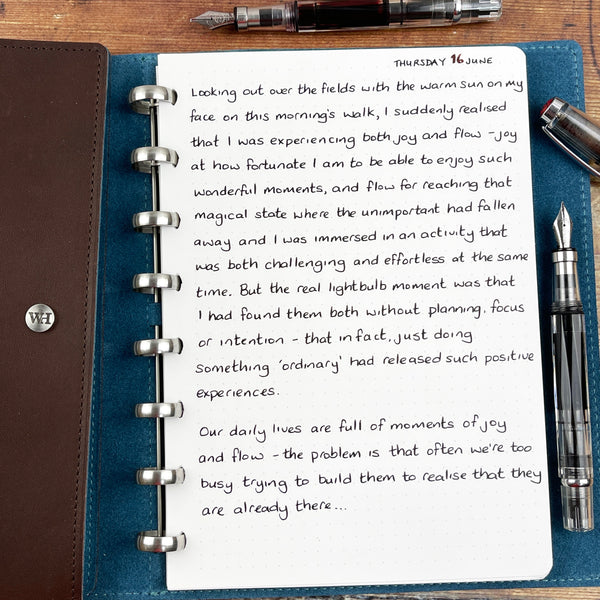 THURSDAY 16 JUNE
Looking out over the fields with the warm sun on my
face on this morning's walk, I suddenly realised
that I was experiencing both joy and flow - joy
at how fortunate I am to be able to enjoy such
wonderful moments, and flow for reaching that
magical state where the unimportant had fallen
away and I was immersed in an activity that
was both challenging and effortless at the same
time. But the real lightbulb moment was that
I had found them both without planning, focus
or intention - that in fact, just doing
something 'ordinary' had released such positive
experiences.
Our daily lives are full of moments of joy
and flow - the problem is that often we're too
busy trying to build them to realise that they
are already there...
WH